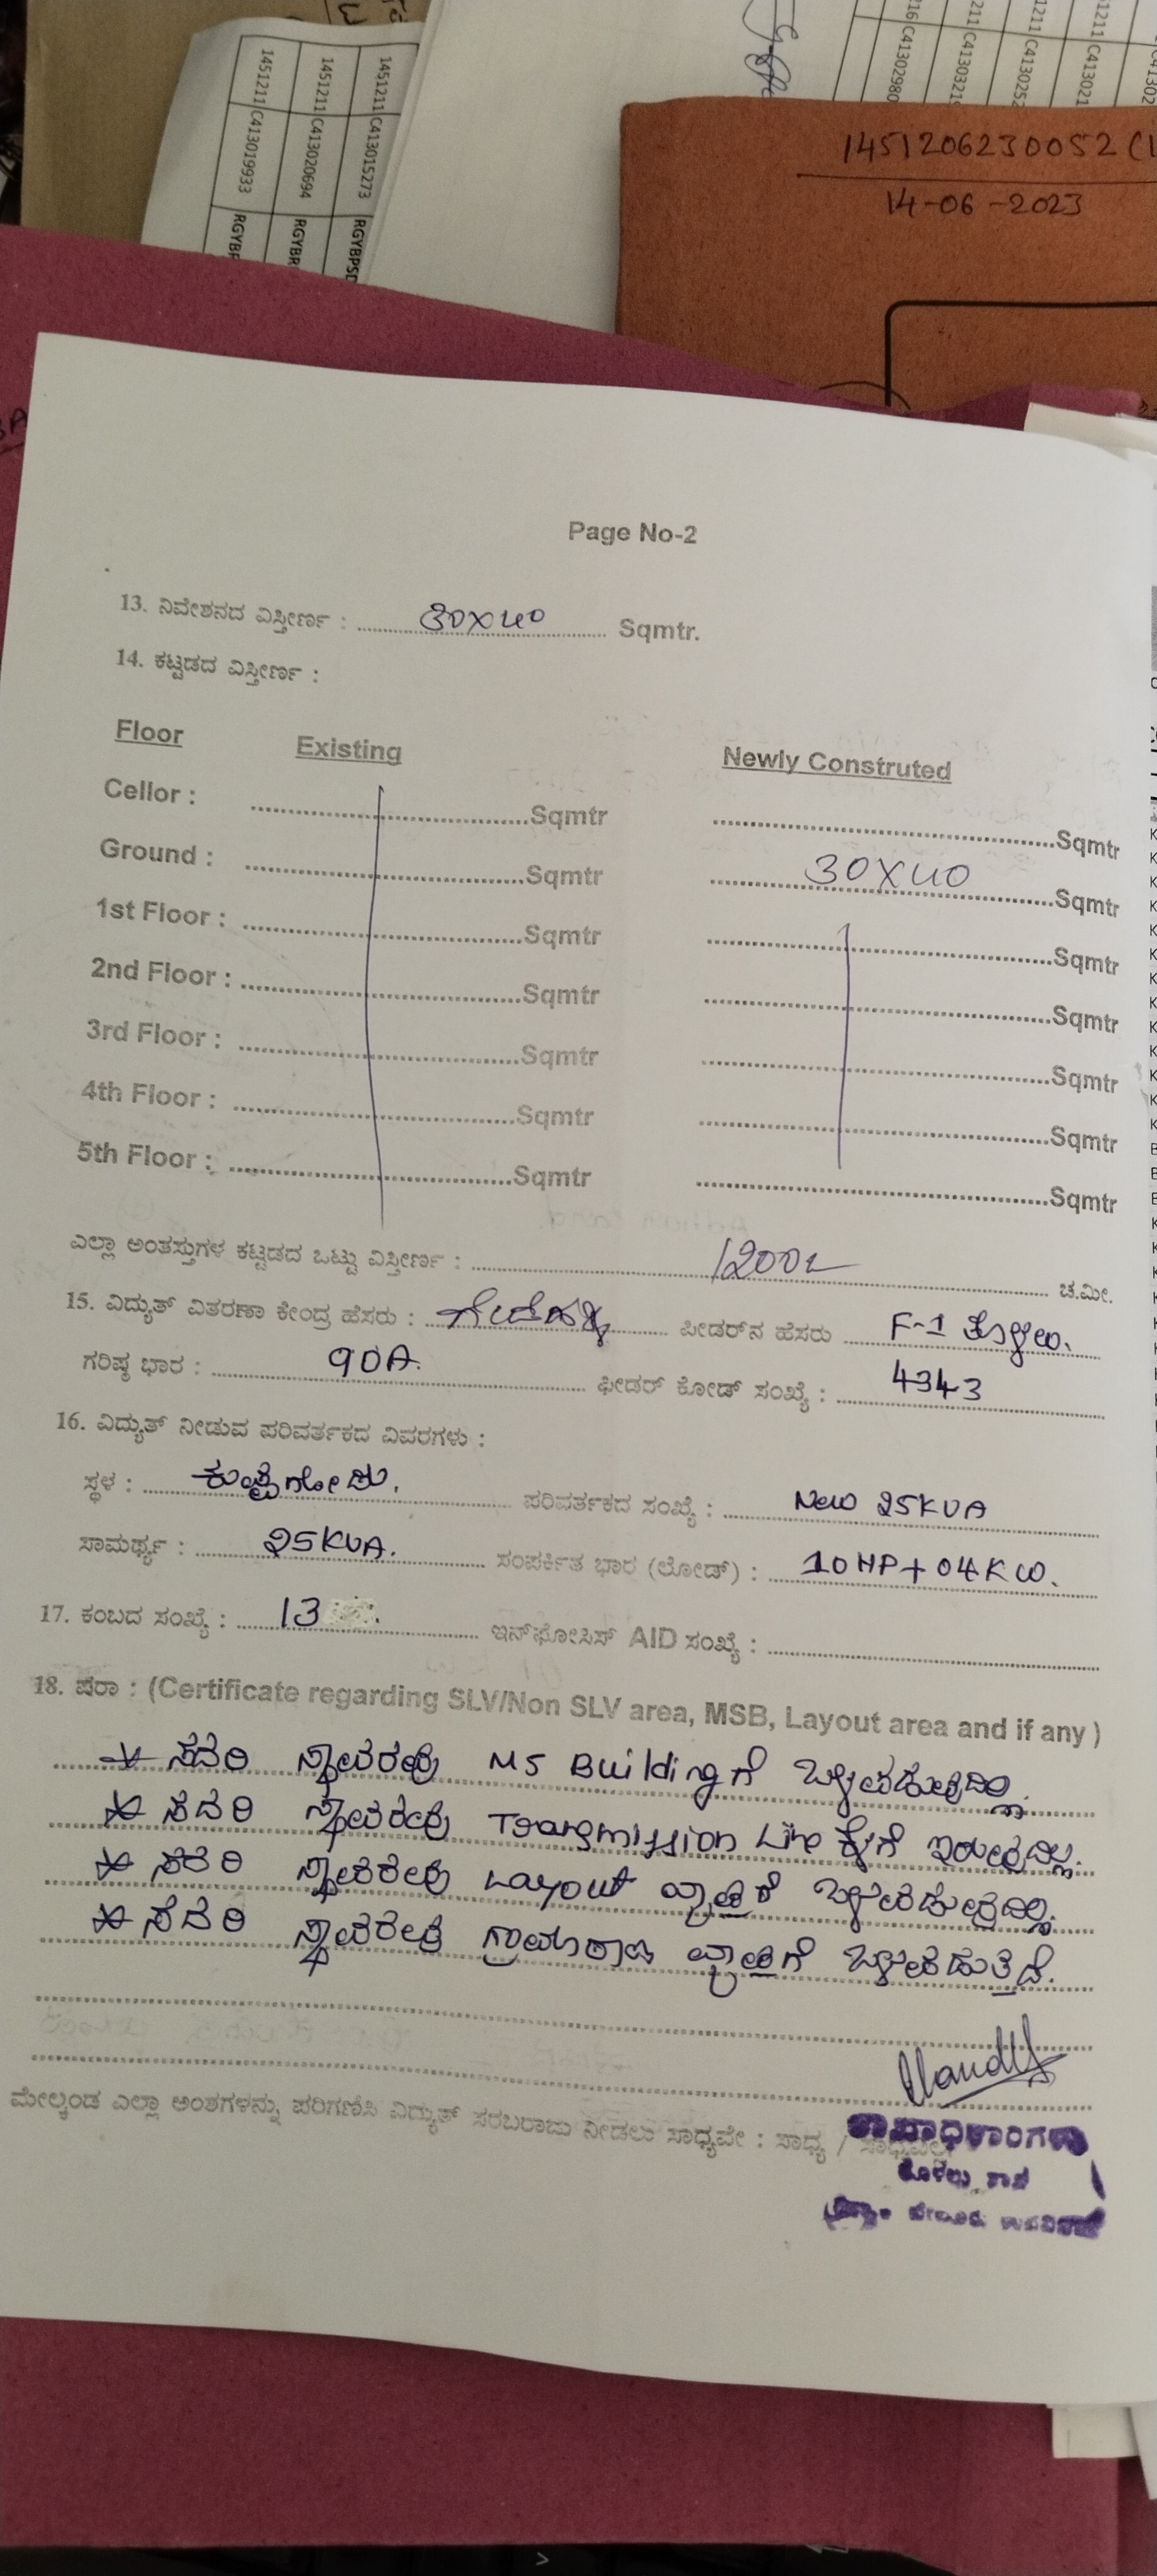 1451211 C413019933 RGYBF
1451211 C413020694 RGYBR
1451211 C413015273 RGYBPSD
C41302980
C4130321
1211 C4130252
1211 C413021
1451206230052
14-06-2023
Page No-2
13. ನಿವೇಶನದ ವಿಸ್ತೀರ್ಣ : 30X40 Sqmtr.
14. ಕಟ್ಟಡದ ವಿಸ್ತೀರ್ಣ :
Floor Existing Newly Construted
Cellor : Sqmtr Sqmtr
Ground : Sqmtr 30X40 Sqmtr
1st Floor : Sqmtr Sqmtr
2nd Floor : Sqmtr Sqmtr
3rd Floor : Sqmtr Sqmtr
4th Floor : Sqmtr Sqmtr
5th Floor : Sqmtr Sqmtr
ಎಲ್ಲಾ ಅಂತಸ್ತುಗಳ ಕಟ್ಟಡದ ಒಟ್ಟು ವಿಸ್ತೀರ್ಣ : 1200 ಚ.ಮೀ.
15. ವಿದ್ಯುತ್ ವಿತರಣಾ ಕೇಂದ್ರ ಹೆಸರು : ಫೀಡರ್‌ನ ಹೆಸರು F-1
ಗರಿಷ್ಠ ಭಾರ : 90A. ಫೀಡರ್ ಕೋಡ್ ಸಂಖ್ಯೆ : 4343
16. ವಿದ್ಯುತ್ ನೀಡುವ ಪರಿವರ್ತಕದ ವಿವರಗಳು :
ಸ್ಥಳ : ಪರಿವರ್ತಕದ ಸಂಖ್ಯೆ : New 25KVA
ಸಾಮರ್ಥ್ಯ : 25KVA. ಸಂಪರ್ಕಿತ ಭಾರ (ಲೋಡ್) : 10HP+04KW.
17. ಕಂಬದ ಸಂಖ್ಯೆ : 13 ಇನ್‌ಫೋಸಿಸ್ AID ಸಂಖ್ಯೆ :
18. ಷರಾ : (Certificate regarding SLV/Non SLV area, MSB, Layout area and if any )
ಸದರಿ ಸ್ಥಾವರವು MS Buildingಗೆ ಒಳಪಡುವುದಿಲ್ಲ.
ಸದರಿ ಸ್ಥಾವರವು Transmission Line ಕೆಳಗೆ ಇರುವುದಿಲ್ಲ.
ಸದರಿ ಸ್ಥಾವರವು Layout ವ್ಯಾಪ್ತಿಗೆ ಒಳಪಡುವುದಿಲ್ಲ.
ಸದರಿ ಸ್ಥಾವರವು ಗ್ರಾಮಠಾಣ ವ್ಯಾಪ್ತಿಗೆ ಒಳಪಡುತ್ತಿದೆ.
ಮೇಲ್ಕಂಡ ಎಲ್ಲಾ ಅಂಶಗಳನ್ನು ಪರಿಗಣಿಸಿ ವಿದ್ಯುತ್ ಸರಬರಾಜು ನೀಡಲು ಸಾಧ್ಯವೇ : ಸಾಧ್ಯ / ಸಾಧ್ಯವಿಲ್ಲ
ಶಾಖಾಧಿಕಾರಿಗಳು